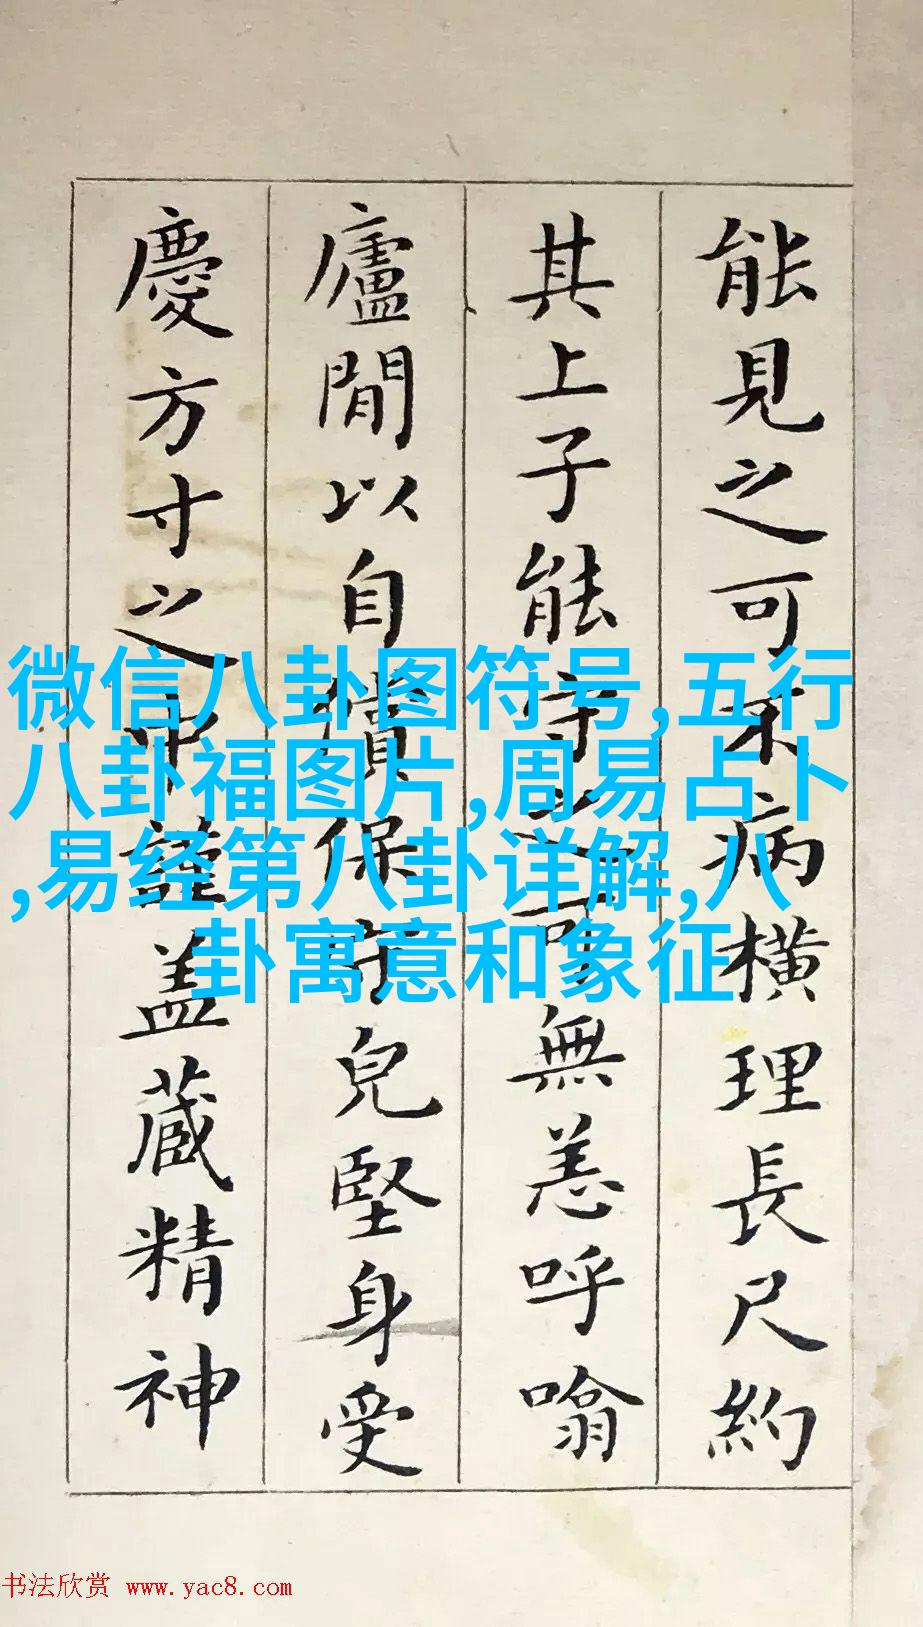 能見之可不病橫理長尺約
其上子能守之可無恙呼噏
廬閒以自償保守兒堅身受
慶方寸之中謹蓋藏精神
微信八卦图符号,五行
八卦福图片,周易占卜
,易经第八卦详解,八
卦寓意和象征
书法欣赏 www.yac8.com